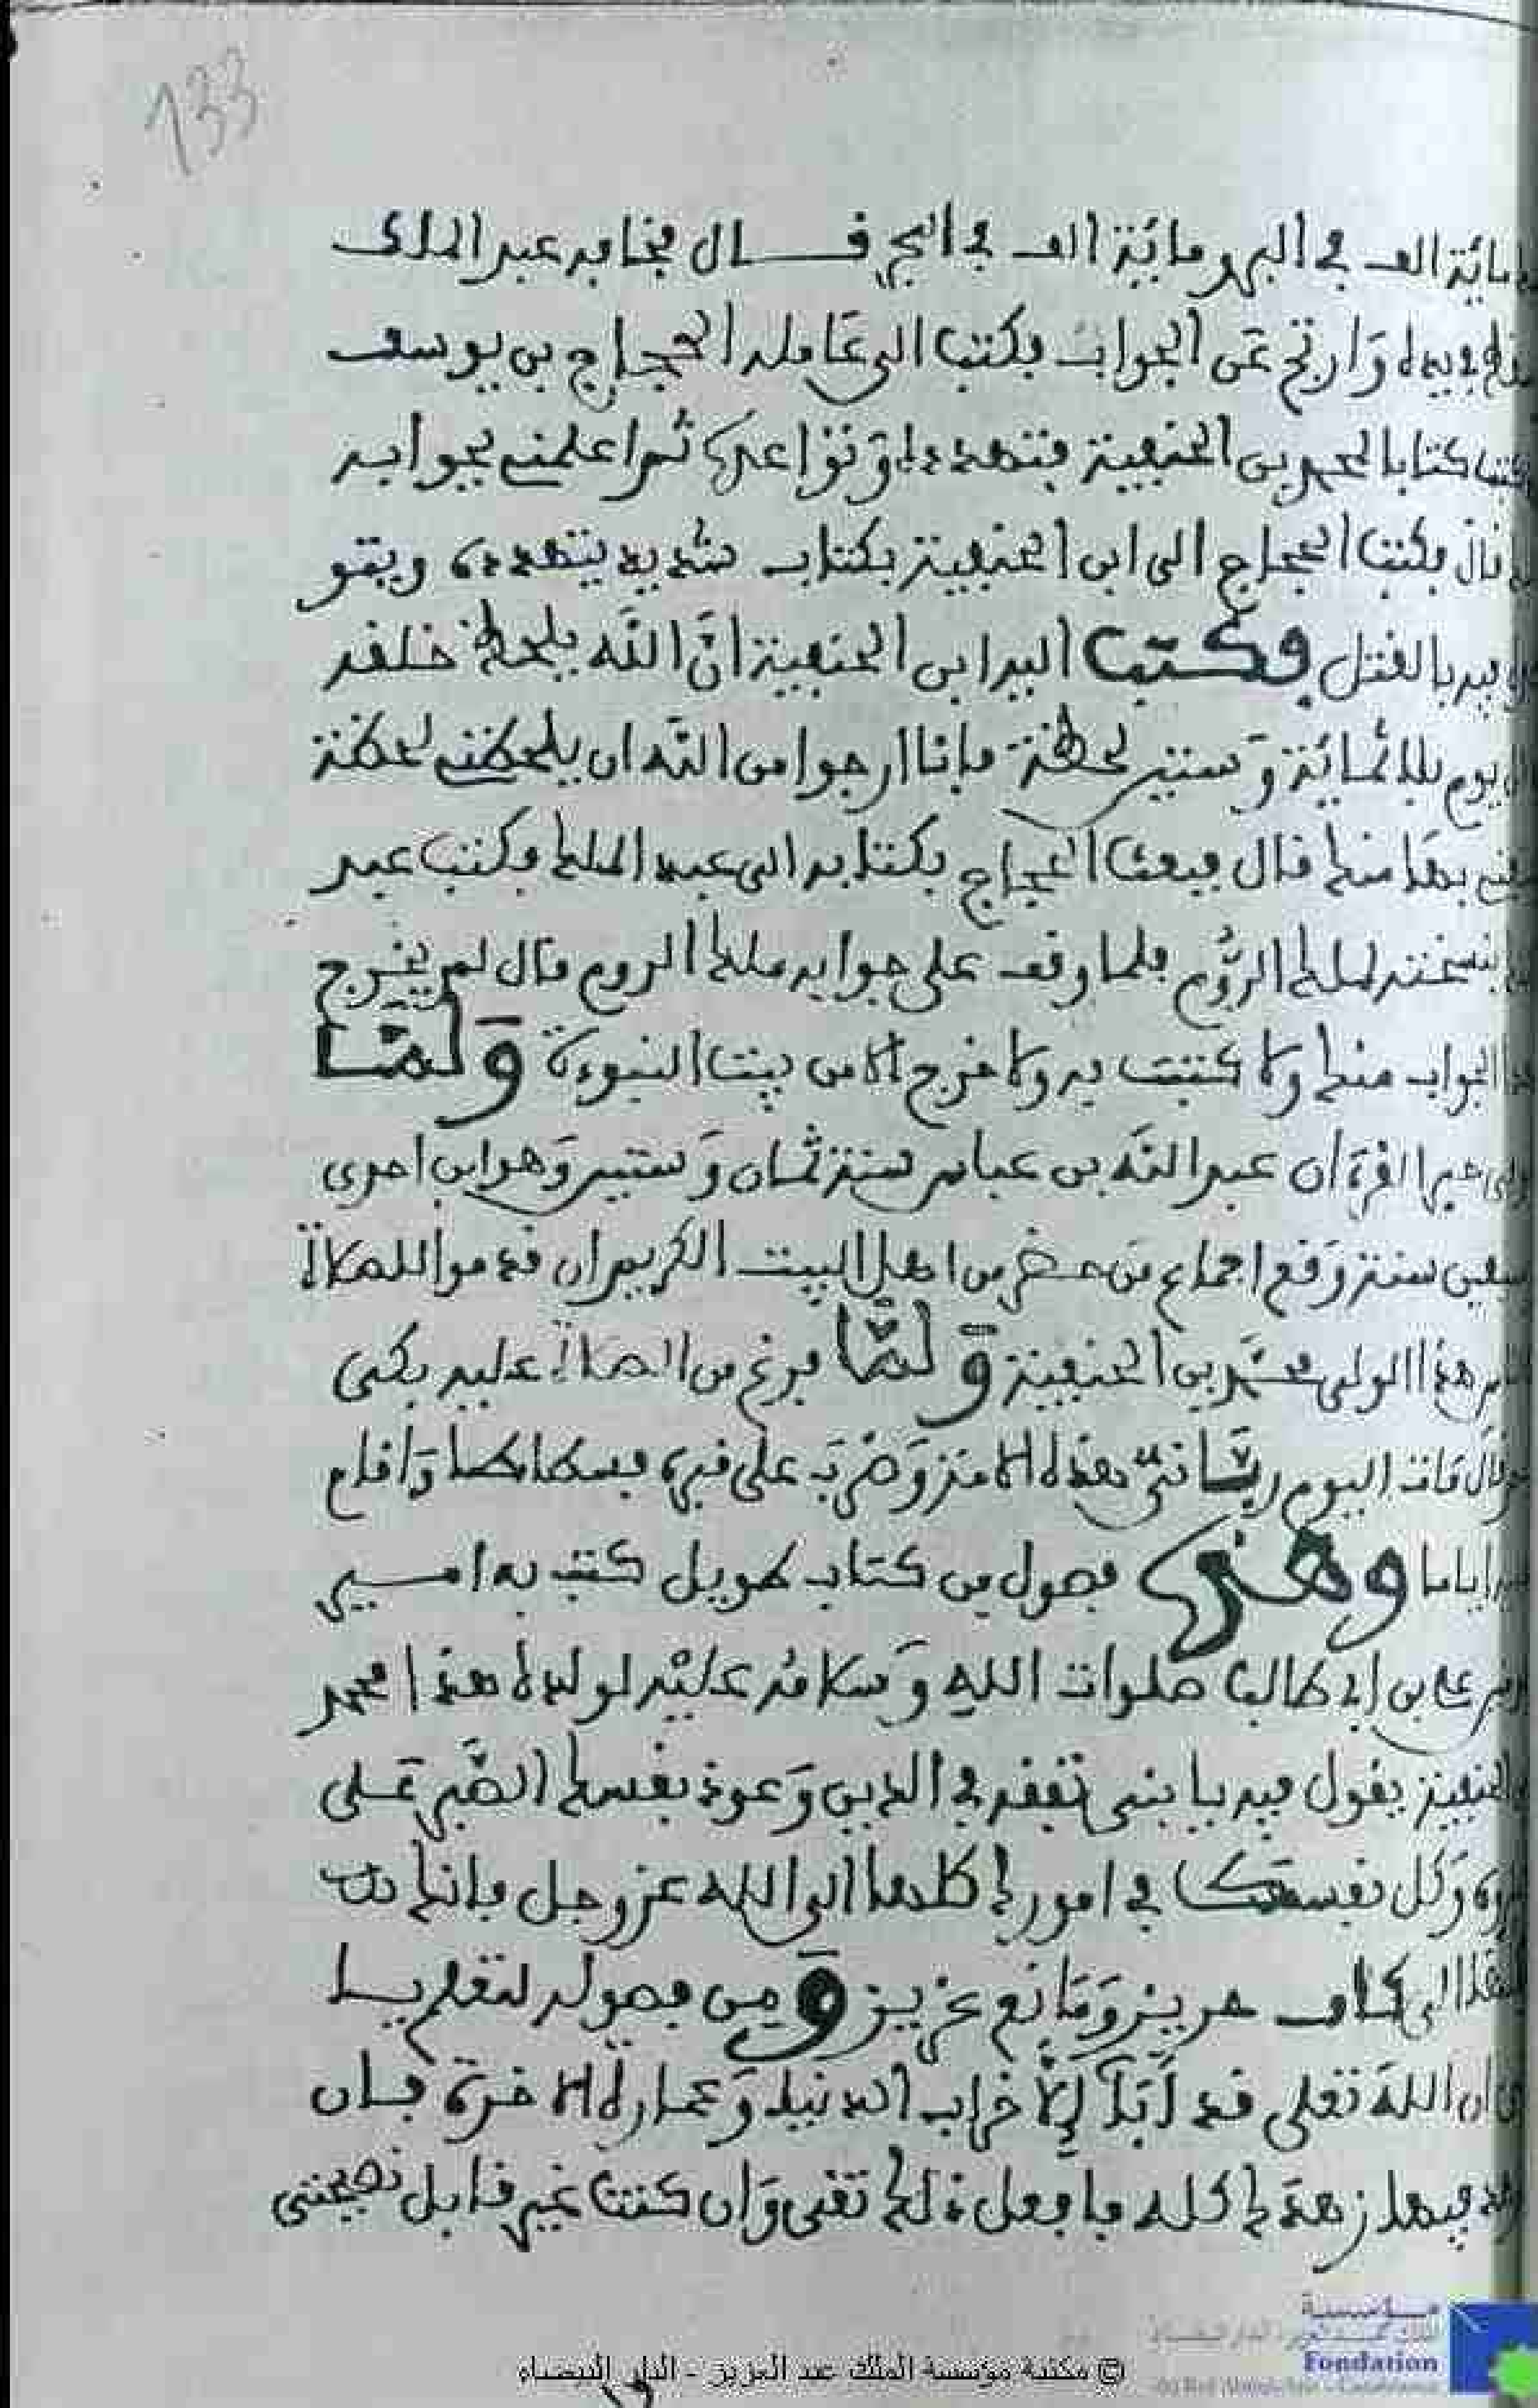 133
مائة الف في البر ومائة الف في البحر قــال فخافه عبد الملك
في يده وارتج عن الجواب فكتب الى عامله الحجاج بن يوسف
كتابا لمحمد بن الحنفية فتهدده وتواعده ثم اعلمني بجوابه
قال فكتب الحجاج الى ابن الحنفية بكتاب شديد يتهدده ويتو
بالقتل فكتب اليه ابن الحنفية انّ الله يلحظ خلفه
يوم ثلاثمائة وستين لحظة فانا ارجوا من الله ان يلحظني لحظة
بها منك قال فبعث الحجاج بكتابه الى عبد الملك فكتب عبد
بنسخته لملك الروم فلما وقف على جوابه ملك الروم قال لم يخرج
الجواب منك ولا كتبت به ولا خرج الا من بيت النبوءة ولما
القرءان عبد الله بن عباس سنة ثمان وستين وهو ابن احدى
سبعين سنة وقع اجماع من حضر من اهل البيت الكريم ان قدموا للصلاة
هذا الولي محمد بن الحنفية ولمّا فرغ من الصلاة عليه بكى
وقال مات اليوم ربّانيّ هذه الامة وضرب على قبره فسطاطا واقام
اياما وهذه فصول من كتاب طويل كتب به امــير
علي بن ابي طالب صلوات الله وسلامه عليه لولده هذا محمد
الحنفية يقول فيه يا بني تفقه في الدين وعوذ نفسك الصّبر على
وكل نفسك في امورك كلها الى الله عز وجل فانك
الى كهف حريز ومانع عزيز ومن فصوله لتعلم يـا
ان الله تعلى قد أبَا إلّا خراب الدنيا وعمارة الاخرة فان
فيها زهدك كله فافعل ذلك تقى وان كنت غير قابل نصيحتى
© مكتبة مؤسسة الملك عبد العزيز - الدار البيضاء
مــؤسســة
Fondation